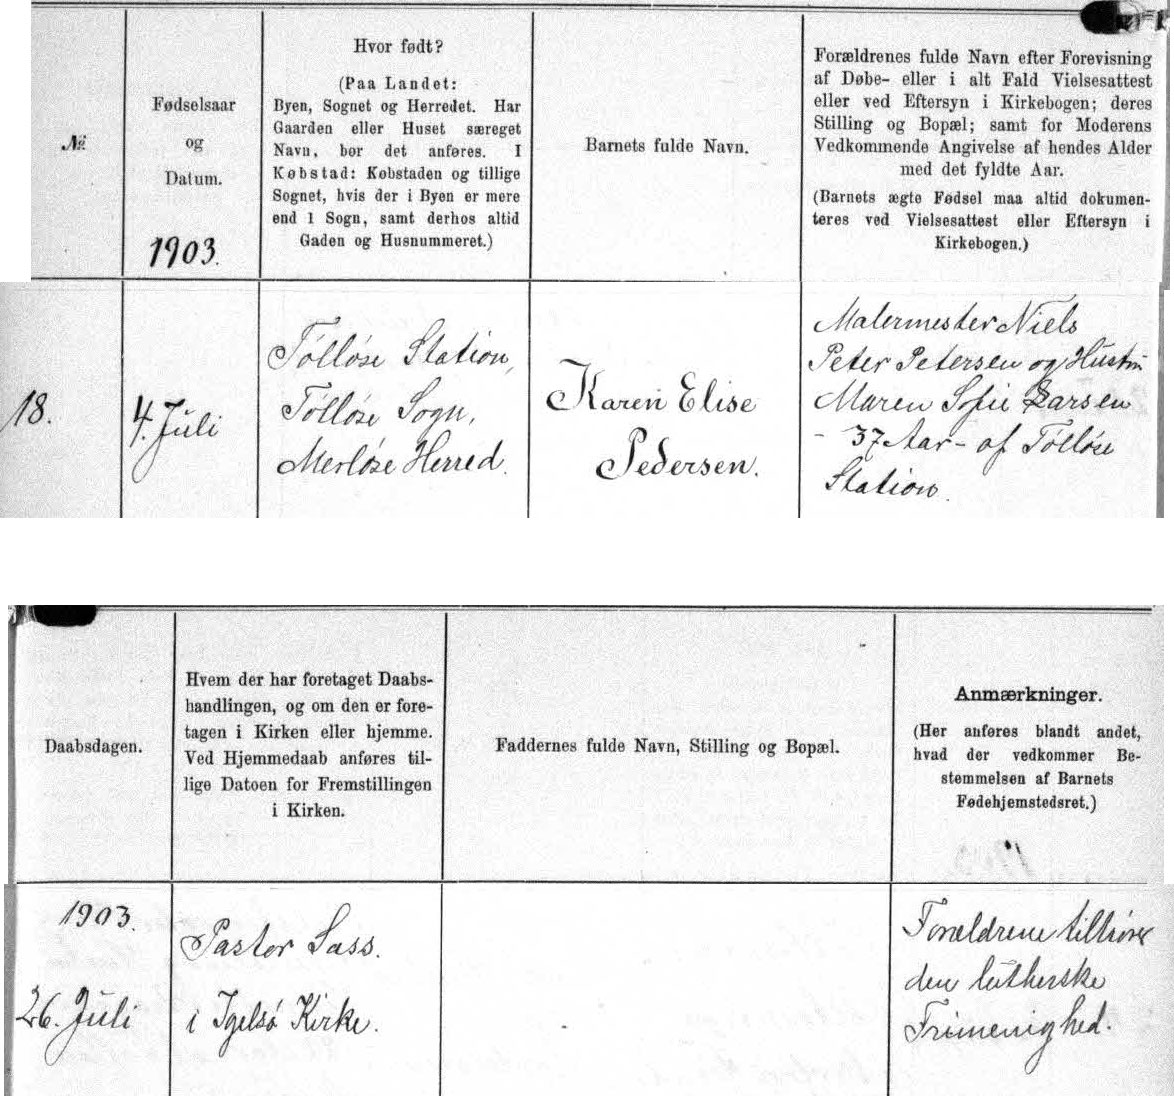 №
Fødselsaar
og
Datum.
1903.
Hvor født?
(Paa Landet:
Byen, Sognet og Herredet. Har
Gaarden eller Huset særeget
Navn, bør det anføres. I
Købstad: Købstaden og tillige
Sognet, hvis der i Byen er mere
end 1 Sogn, samt derhos altid
Gaden og Husnummeret.)
Barnets fulde Navn.
Forældrenes fulde Navn efter Forevisning
af Døbe- eller i alt Fald Vielsesattest
eller ved Eftersyn i Kirkebogen; deres
Stilling og Bopæl; samt for Moderens
Vedkommende Angivelse af hendes Alder
med det fyldte Aar.
(Barnets ægte Fødsel maa altid dokumen-
teres ved Vielsesattest eller Eftersyn i
Kirkebogen.)
18.
4. Juli
Tølløse Station,
Tølløse Sogn,
Merløse Herred.
Karen Elise
Pedersen.
Malermester Niels
Peter Petersen og Hustru
Maren Sofie Larsen
- 37 Aar - af Tølløse
Station.
Daabsdagen.
Hvem der har foretaget Daabs-
handlingen, og om den er fore-
tagen i Kirken eller hjemme.
Ved Hjemmedaab anføres til-
lige Datoen for Fremstillingen
i Kirken.
Faddernes fulde Navn, Stilling og Bopæl.
Anmærkninger.
(Her anføres blandt andet,
hvad der vedkommer Be-
stemmelsen af Barnets
Fødehjemstedsret.)
1903.
26. Juli
Pastor Sass.
i Igelsø Kirke.
Forældrene tilhører
den lutherske
Frimenighed.